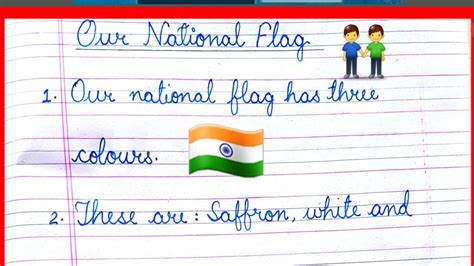 Our National Flag
1. Our national flag has three
colours.
2. These are : Saffron, white and